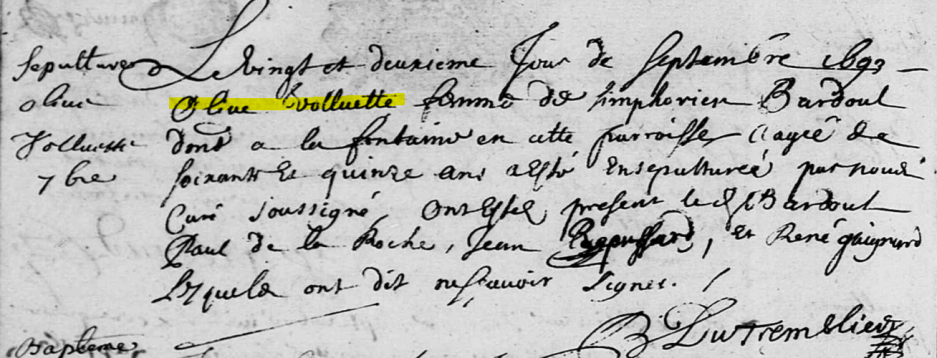 Sepulture
olive
Volluette
7bre
Le vingt et deuxieme Jour de Septembre 1693
Olive Volluette femme de simphorien Bardoul
dont a la fontaine en cette parroisse aagée de
soixante et quinze ans a esté ensepulturée par nous
Curé soussigné, ont estes present led Bardoul
Paul de la Roche, Jean, et René
Lesquels ont dit ne sçavoir signer.
Baptesme